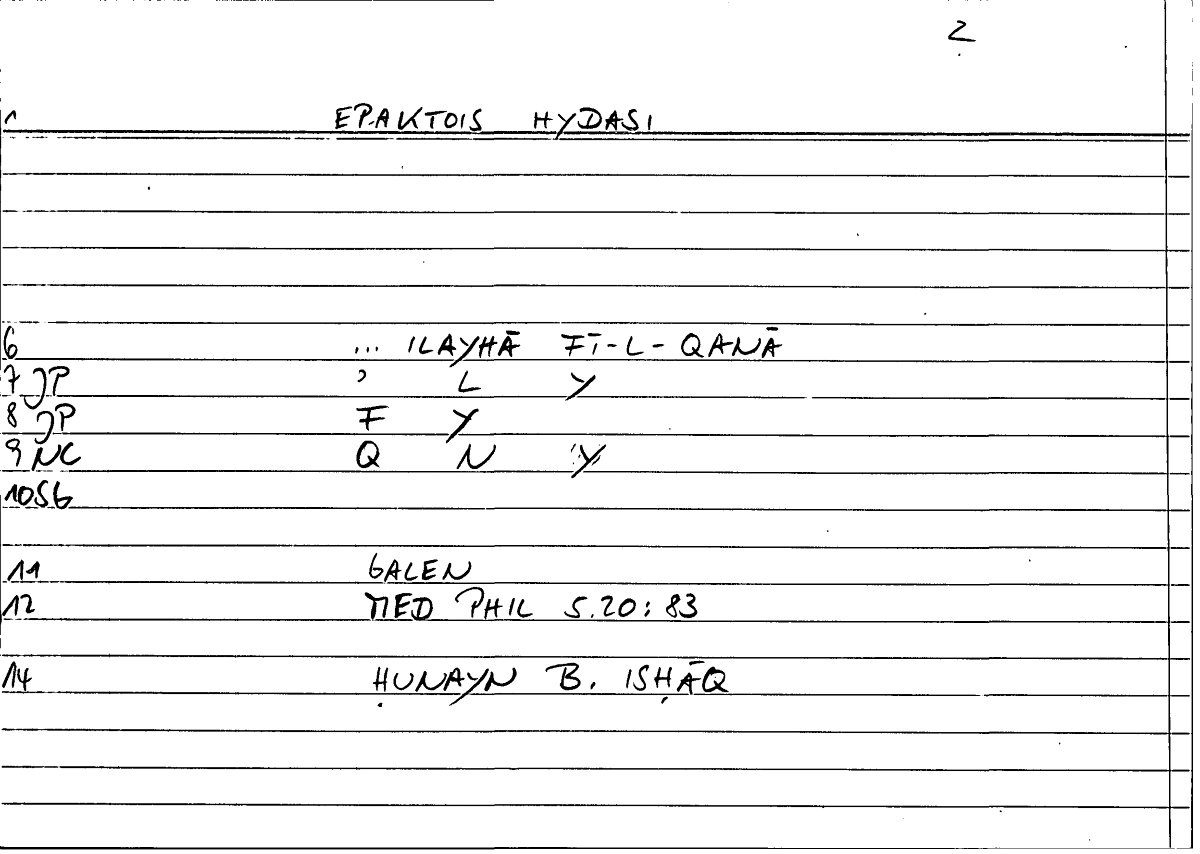 2
1 EPAKTOIS HYDASI
6 ... ILAYHĀ FĪ-L-QANĀ
7 JP ʾ L Y
8 JP F Y
9 NC Q N Y
10 SG
11 GALEN
12 MED PHIL 5.20: 83
14 ḤUNAYN B. ISḤĀQ